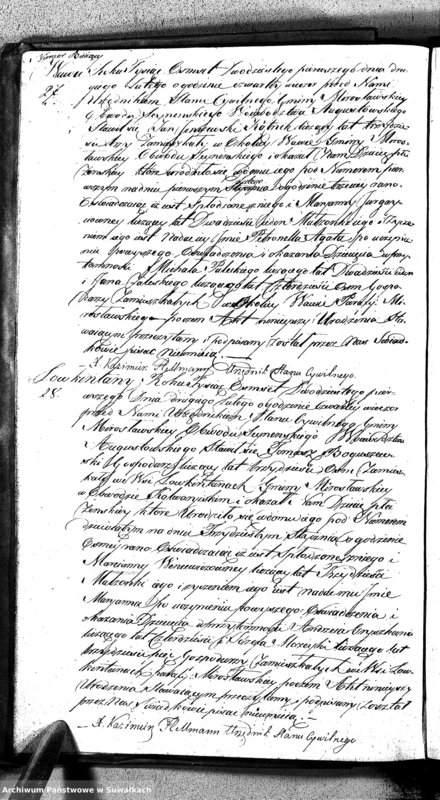 Wawie Roku Tysiąc Ośmset Dwudziestego pierwszego dnia dru-
27. giego Lutego o godzinie czwartey wieczor przed Nami
Urzędnikiem Stanu Cywilnego Gminy Mirosławskiey
Obwodu Seynenskiego Woiewodztwa Augustowskiego
Stawił się Jan Rolnik liczący lat trzydzie-
ści trzy Zamieszkały w Okolicy Wawie Gminy Miros-
ławskiey Obwodu Seynenskiego i okazał Nam Dziecie płci
żenskiey które urodziło się w domu iego pod Numerem pier-
wszym na dniu pierwszym o godzinie trzeciey rano
Oświadczaiąc iż iest spłodzone z niego i Maryanny
liczącey lat Dwadzieścia ieden Małżonki iego i życze-
niem iego iest nadać mu Imie Petronella Agata Po uczynie-
niu powyższego Oświadczenia i okazania Dziecięcia w przy-
tomności Michała liczącego lat Dwadzieścia
i Jana liczącego lat Czterdzieści Gospo-
darzy Zamieszkałych w Okolicy Wawie Parafii Mi-
rosławskiey poczem Akt ninieyszy Urodzenia Sta-
waiącym przeczytany i podpisany został przez Nas Świad-
kowie pisać nieumieią
X. Kazimierz Hellmann Urzędnik Stanu Cywilnego.
Łowkentany Roku Tysiąc Ośmset Dwudziestego pier-
28. wszego Dnia drugiego Lutego o godzinie czwartey wieczor
przed Nami Urzędnikiem Stanu Cywilnego Gminy
Mirosławskiey Obwodu Seynenskiego Woiewodztwa
Augustowskiego Stawił się Tomasz Boguszew-
ski Gospodarz liczący lat trzydzieści Ośm Zamiesz-
kały we Wsi Łowkentanach Gminy Mirosławskiey
w Obwodzie Kalwaryiskim i okazał Nam Dziecie płci
Żenskiey które Urodziło się w domu iego pod Numerem
dziewiątym na dniu Trzydziestym Stycznia o godzinie
Osmey rano Oświadczaiąc iż iest Spłodzone z niego i
Maryanny liczącey lat Trzydzieści
Małżonki iego i życzeniem iego iest nadać mu Imie
Maryanna Po uczynieniu powyższego Oświadczenia i
okazania Dziecięcia w przytomności Andrzeia
liczącego lat Czterdzieści i Józefa liczącego lat
trzydzieści pięć Gospodarzy Zamieszkałych we Wsi Łow-
kentanach Parafii Mirosławskiey poczem Akt ninieyszy
Urodzenia Stawaiącym przeczytany i podpisany został
przez Nas Świadkowie pisać nieumieią
X. Kazimierz Hellmann Urzędnik Stanu Cywilnego
Archiwum Państwowe w Suwałkach